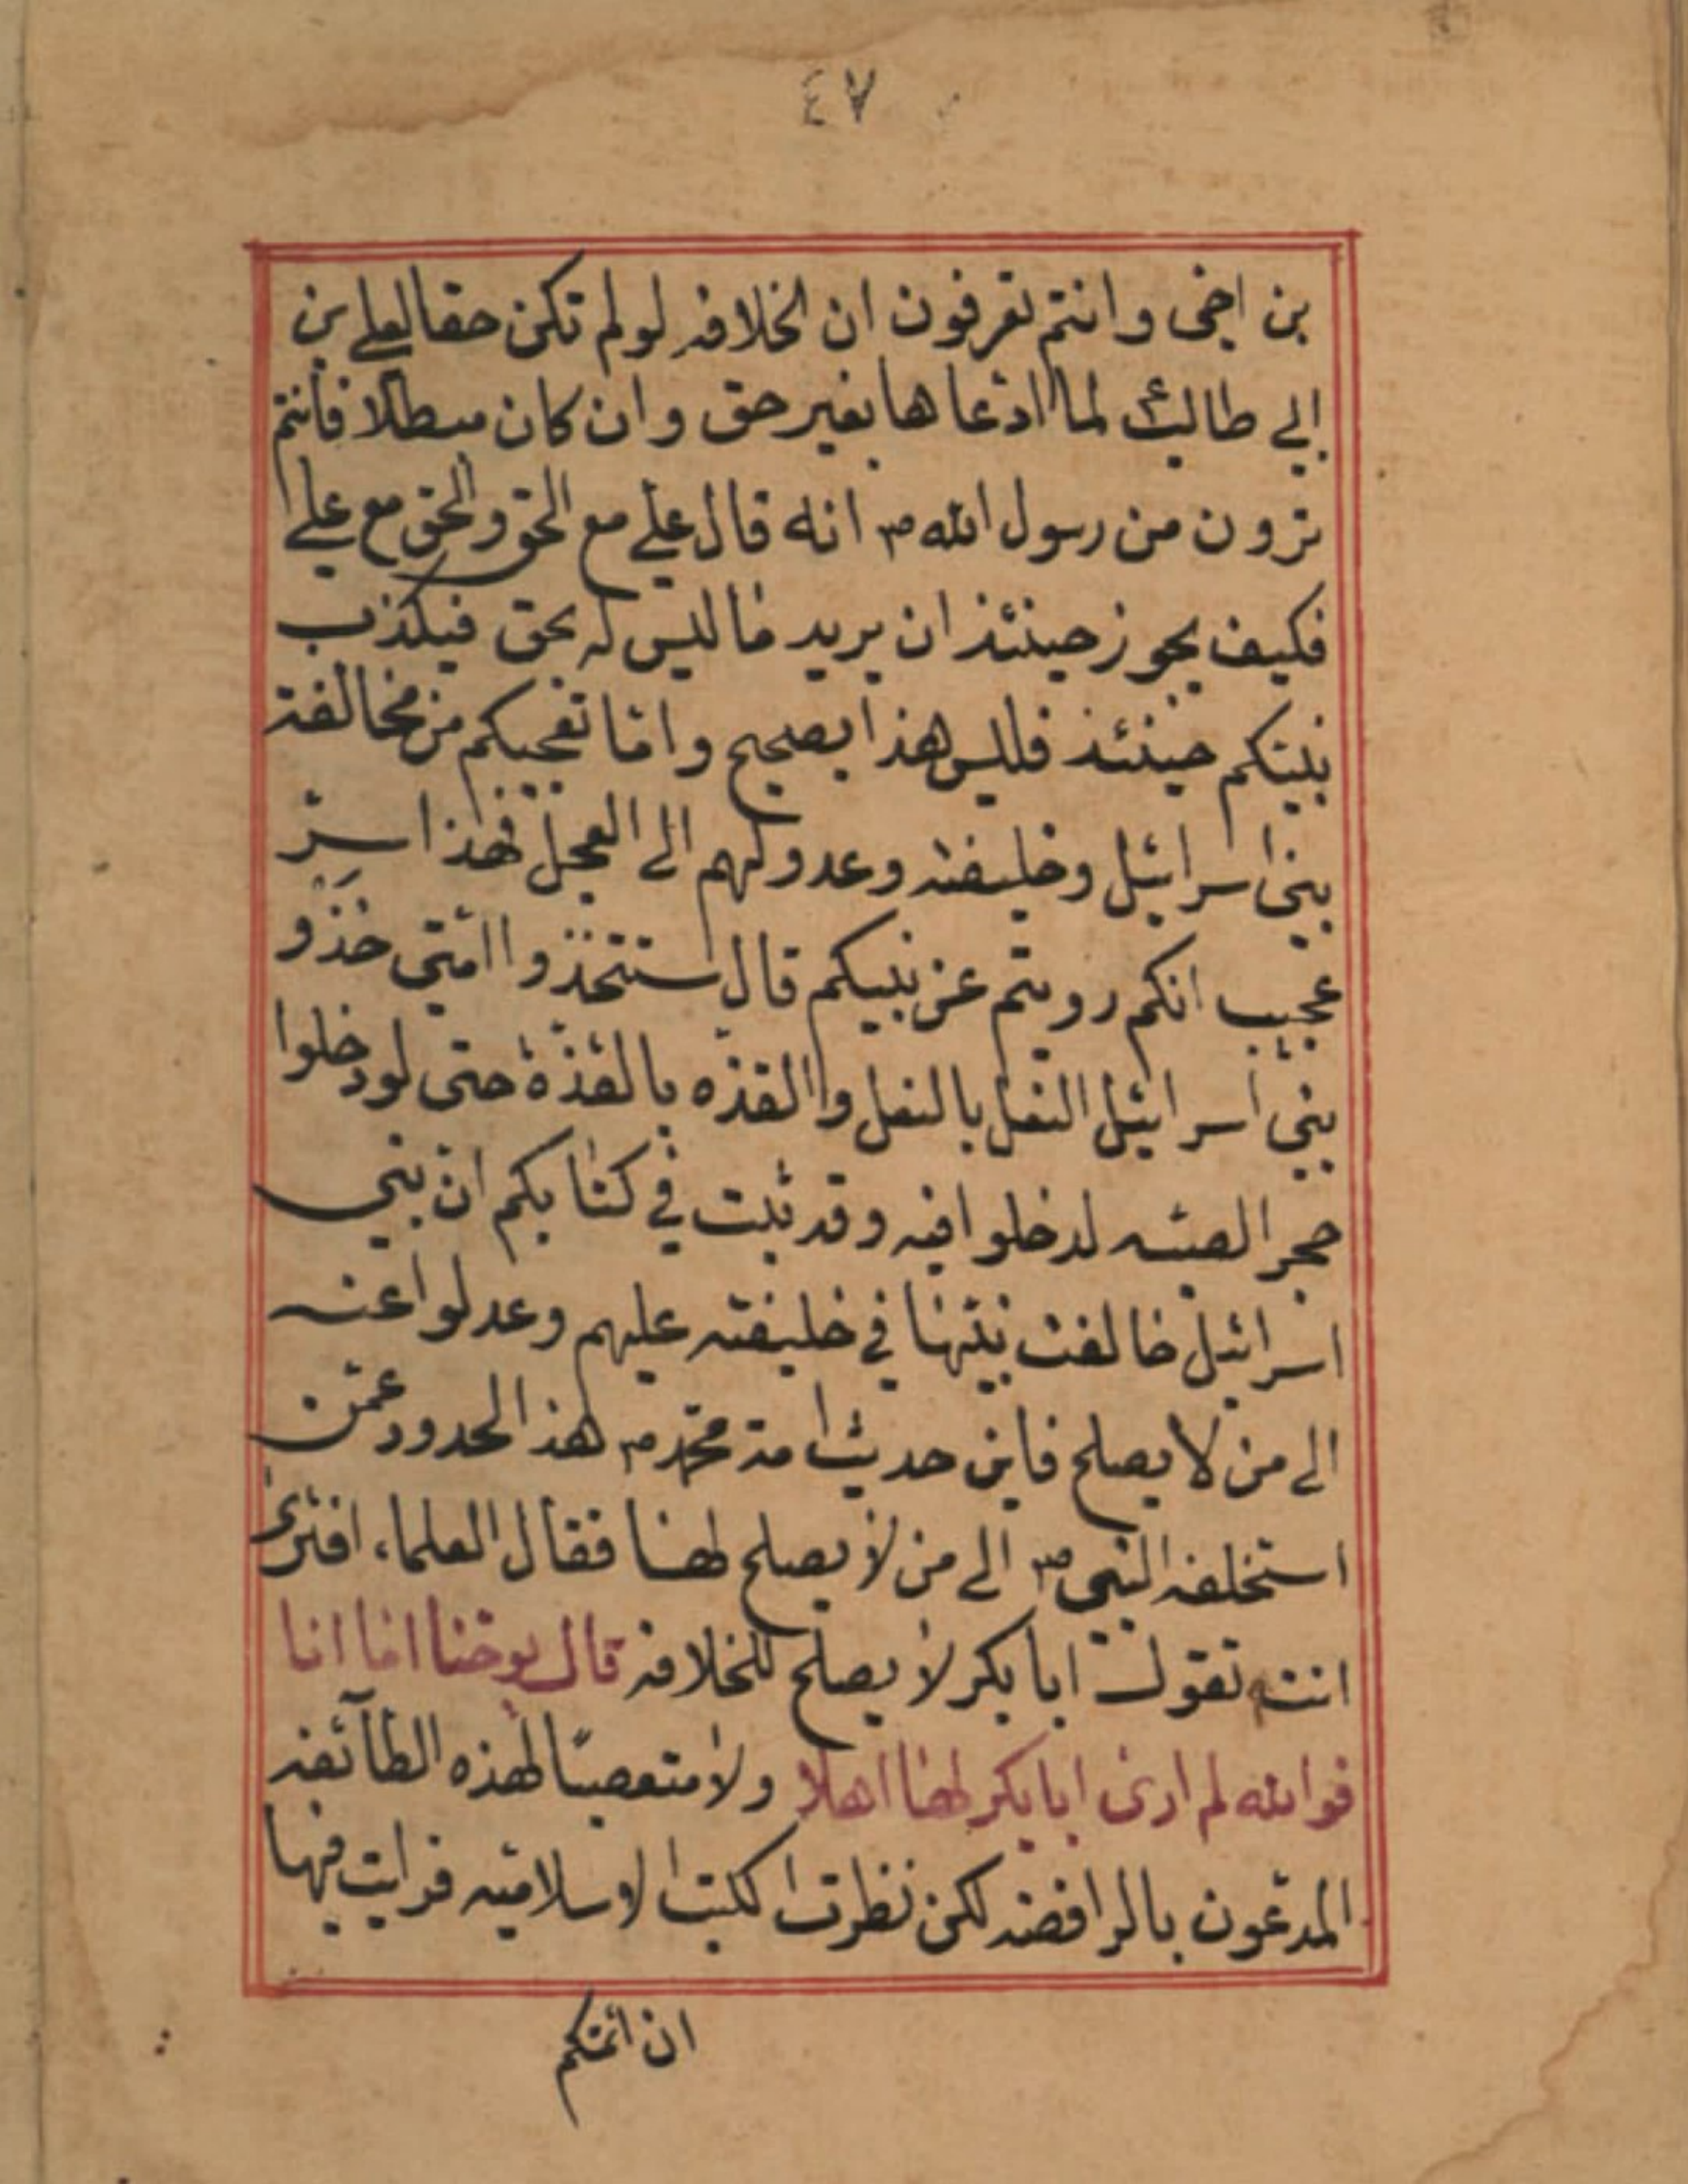 ٤٧
بن اخی وانتم تعرفون ان الخلافه لولم تکن حقا لعلے بن
ابے طالب لما ادّعاها بغیر حق وان کان مبطلا فانتم
ترون من رسول الله ص انه قال علے مع الحق والحق مع علے
فکیف یجوز حینئذ ان یرید ما لیس له بحق فیکذب
نبیکم حینئذ فلیس هذا بصحیح وامّا تعجبکم من مخالفة
بنی اسرائیل وخلیفته وعدولهم الے العجل فهذا سرّ
عجیب انکم رویتم عن نبیکم قال ستتخذوا امّتی خذو
بنی اسرائیل النعل بالنعل والقذه بالقذّة حتی لودخلوا
حجر الضبّه لدخلوا فیه وقد ثبت فی کتابکم ان بنی
اسرائیل خالفت نبیّها فی خلیفته علیهم وعدلوا عنه
الے من لا یصلح فاین حدیث امة محمّد ص لهذا الحدود عمّن
استخلفه النبی ص الے من لا یصلح لها فقال العلماء افتری
انت تقول ابا بکر لا یصلح للخلافه قال یوحنا اما انا
فوالله لم اری ابا بکر لها اهلا ولا متعصبّا لهذه الطآئفه
المدعّون بالرافضه لکن نظرت الکتب الاسلامیّه فرایت فیها
ان ائمتکم